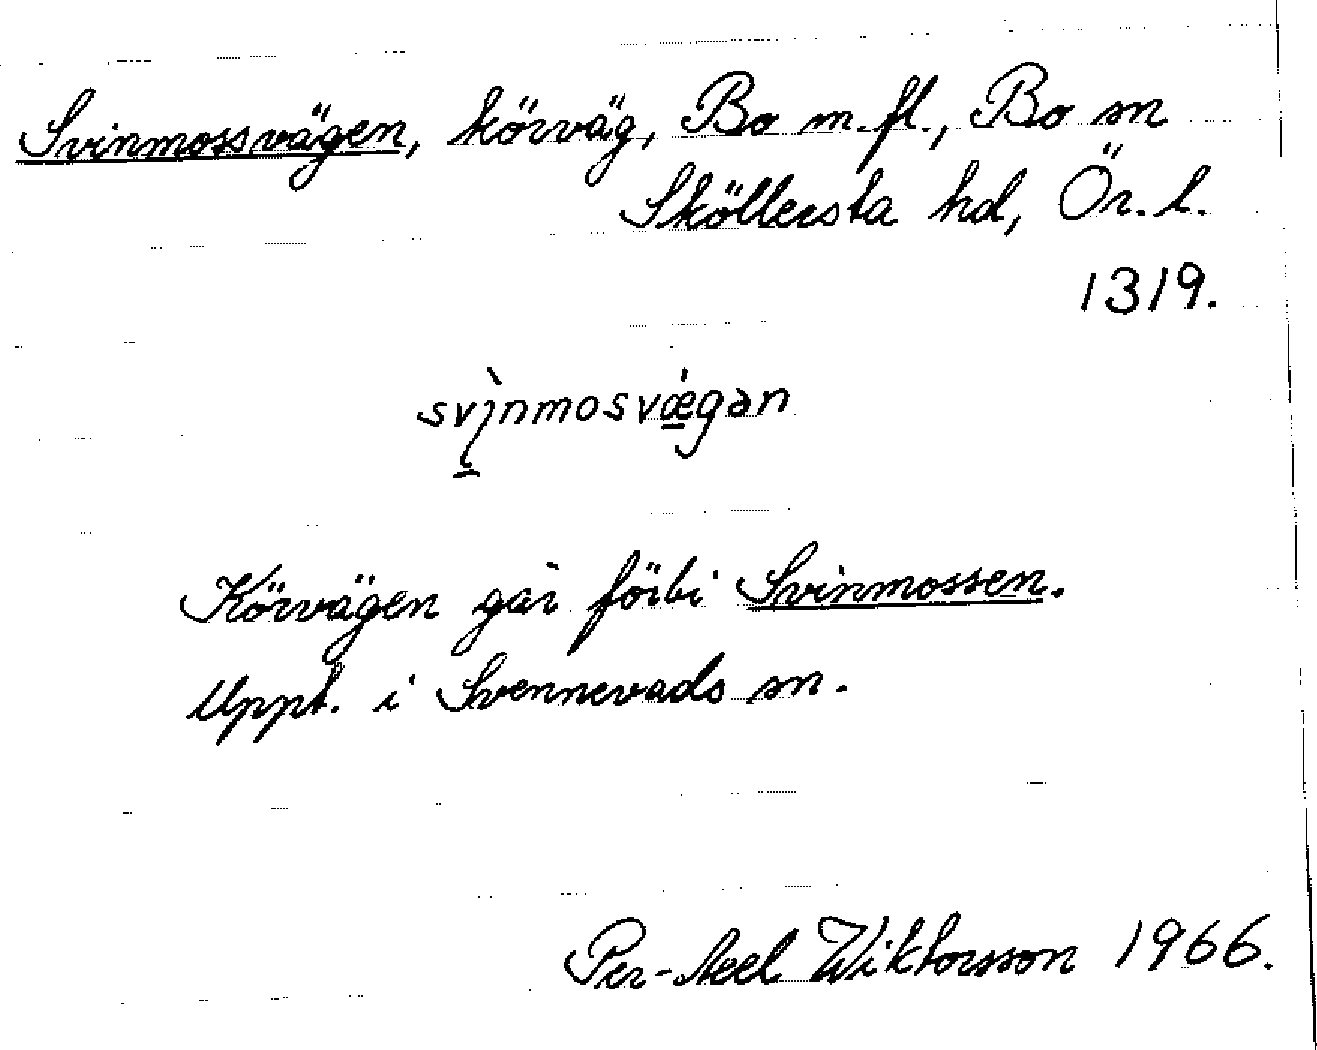 Svinmossvägen, körväg, Bo m.fl., Bo sn
Sköllersta hd, Ör. l.
1319.
svı̀nmosvǽgən
Körvägen går förbi Svinmossen.
Uppt. i Svennevads sn.
Per-Axel Wiktorsson 1966.